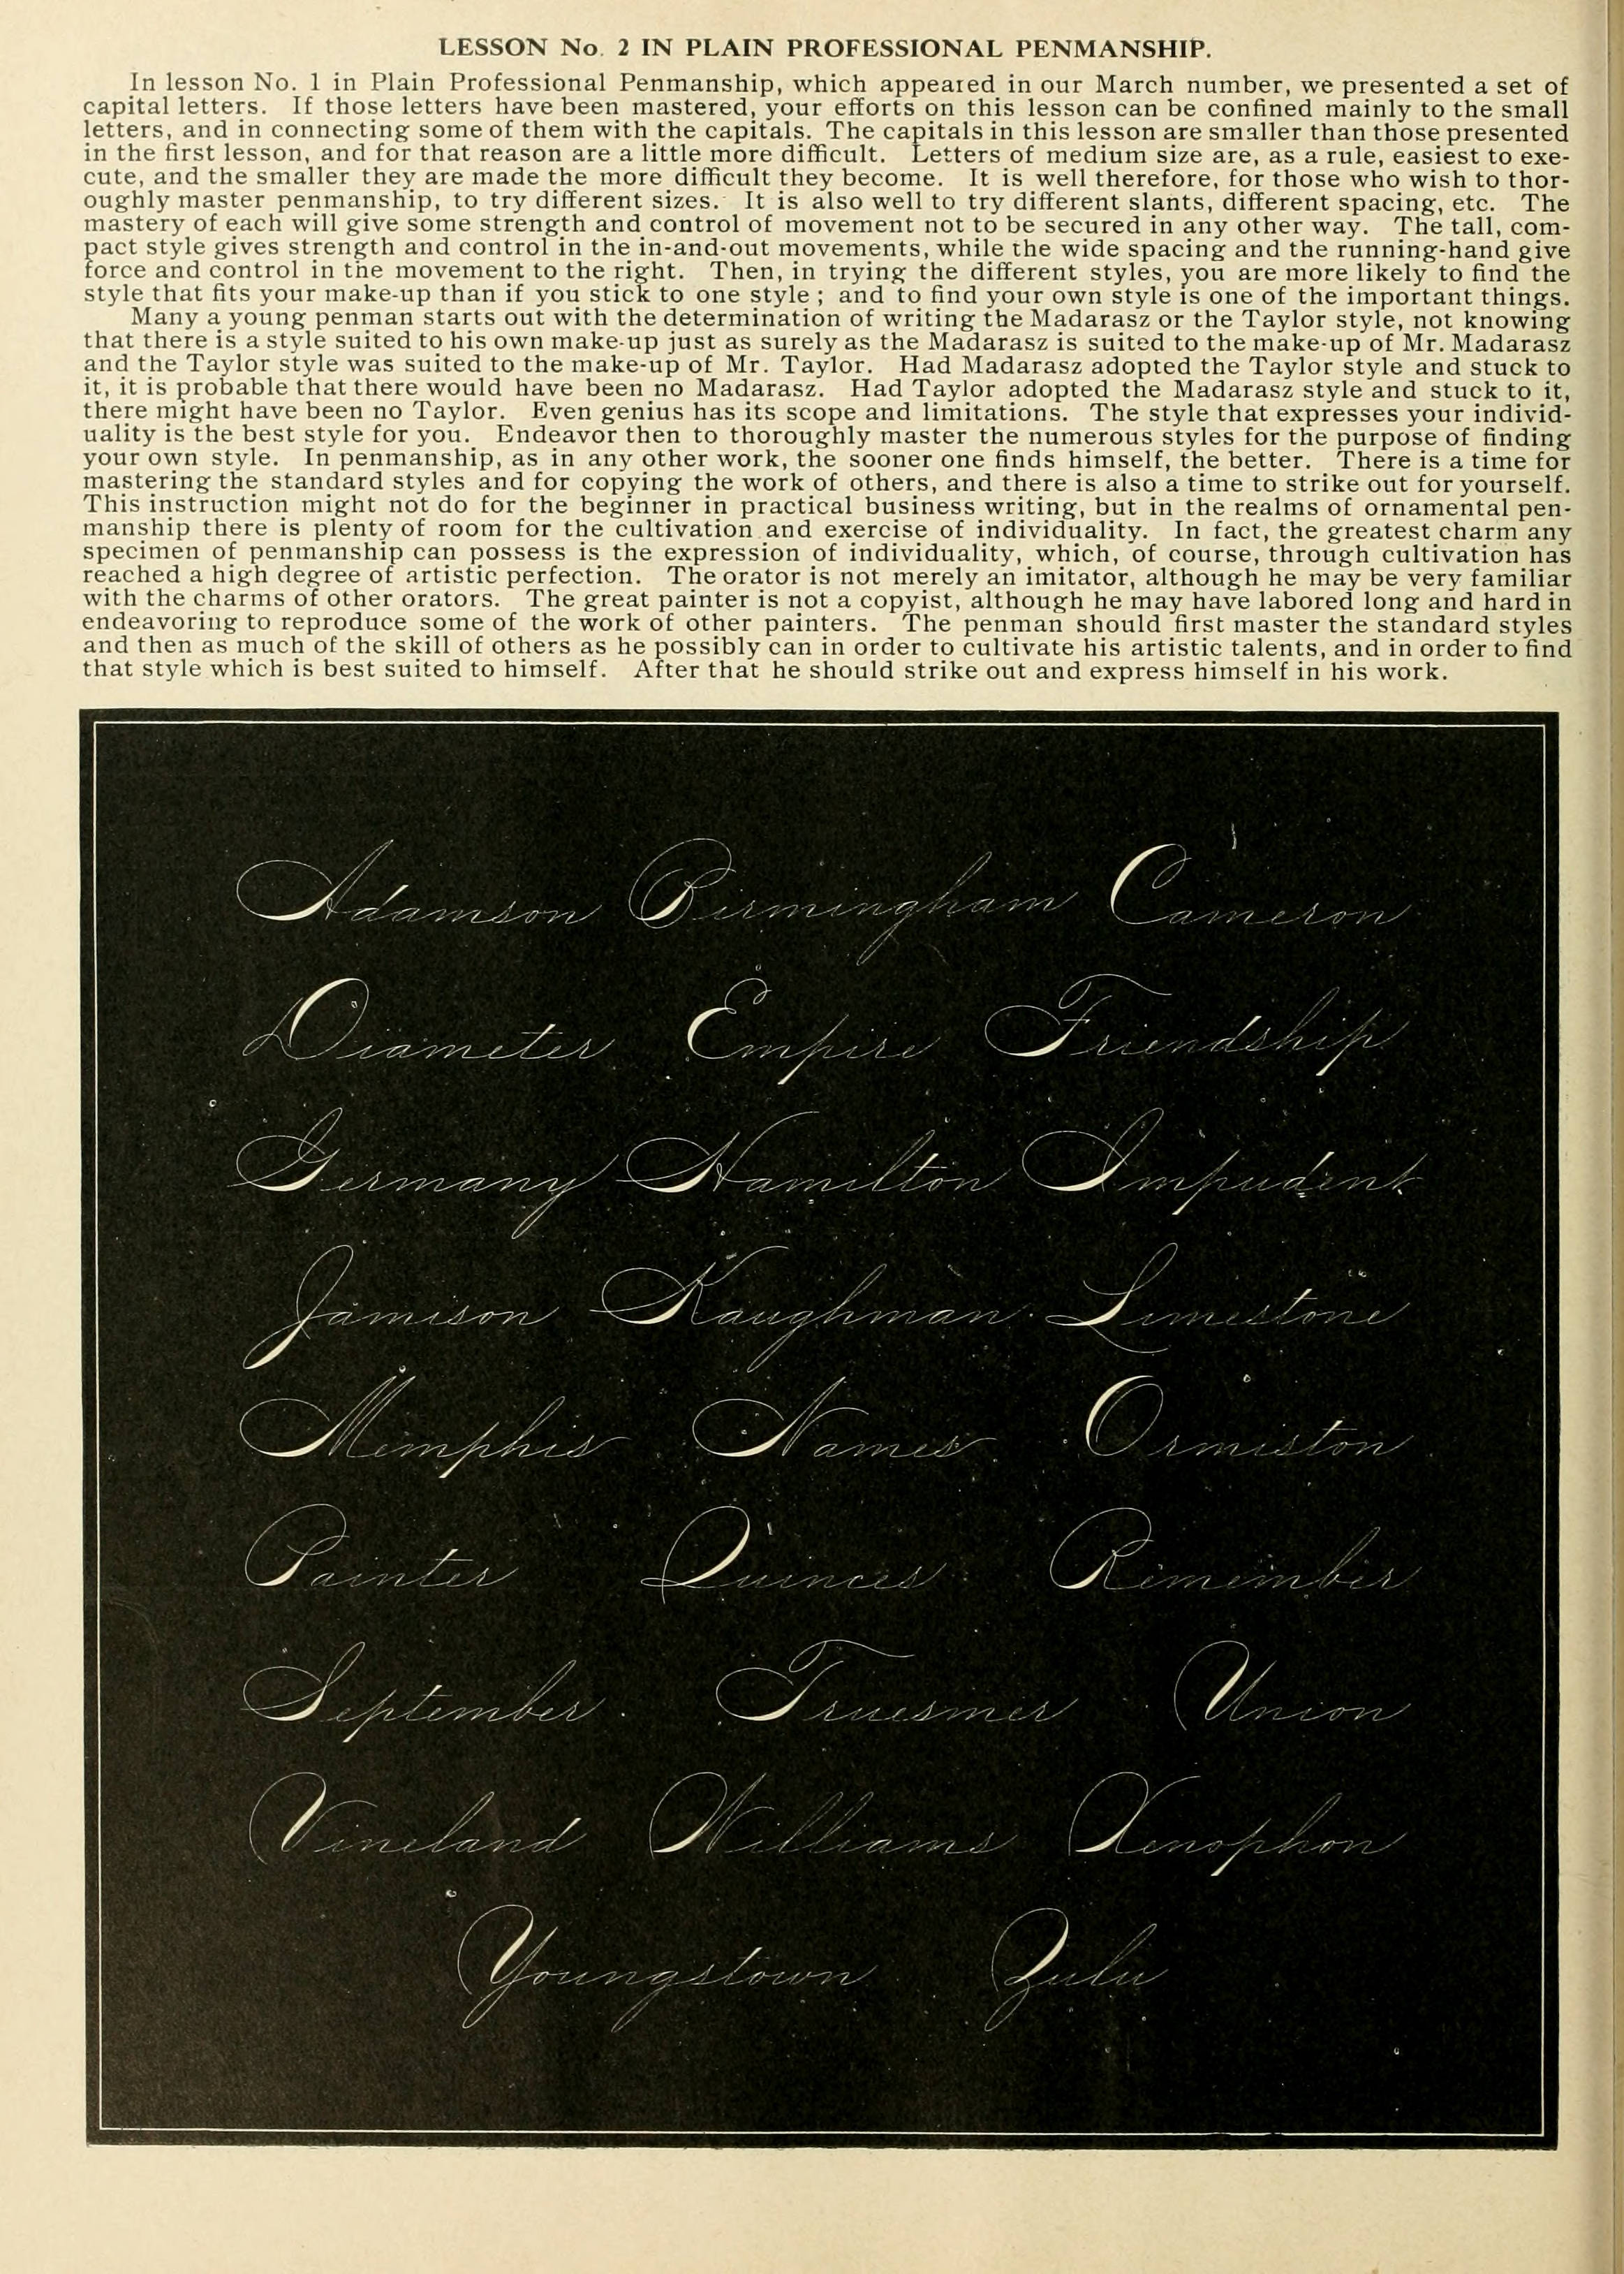 LESSON No. 2 IN PLAIN PROFESSIONAL PENMANSHIP.
In lesson No. 1 in Plain Professional Penmanship, which appeared in our March number, we presented a set of
capital letters. If those letters have been mastered, your efforts on this lesson can be confined mainly to the small
letters, and in connecting some of them with the capitals. The capitals in this lesson are smaller than those presented
in the first lesson, and for that reason are a little more difficult. Letters of medium size are, as a rule, easiest to exe-
cute, and the smaller they are made the more difficult they become. It is well therefore, for those who wish to thor-
oughly master penmanship, to try different sizes. It is also well to try different slants, different spacing, etc. The
mastery of each will give some strength and control of movement not to be secured in any other way. The tall, com-
pact style gives strength and control in the in-and-out movements, while the wide spacing and the running-hand give
force and control in the movement to the right. Then, in trying the different styles, you are more likely to find the
style that fits your make-up than if you stick to one style ; and to find your own style is one of the important things.
Many a young penman starts out with the determination of writing the Madarasz or the Taylor style, not knowing
that there is a style suited to his own make-up just as surely as the Madarasz is suited to the make-up of Mr. Madarasz
and the Taylor style was suited to the make-up of Mr. Taylor. Had Madarasz adopted the Taylor style and stuck to
it, it is probable that there would have been no Madarasz. Had Taylor adopted the Madarasz style and stuck to it,
there might have been no Taylor. Even genius has its scope and limitations. The style that expresses your individ-
uality is the best style for you. Endeavor then to thoroughly master the numerous styles for the purpose of finding
your own style. In penmanship, as in any other work, the sooner one finds himself, the better. There is a time for
mastering the standard styles and for copying the work of others, and there is also a time to strike out for yourself.
This instruction might not do for the beginner in practical business writing, but in the realms of ornamental pen-
manship there is plenty of room for the cultivation and exercise of individuality. In fact, the greatest charm any
specimen of penmanship can possess is the expression of individuality, which, of course, through cultivation has
reached a high degree of artistic perfection. The orator is not merely an imitator, although he may be very familiar
with the charms of other orators. The great painter is not a copyist, although he may have labored long and hard in
endeavoring to reproduce some of the work of other painters. The penman should first master the standard styles
and then as much of the skill of others as he possibly can in order to cultivate his artistic talents, and in order to find
that style which is best suited to himself. After that he should strike out and express himself in his work.
Adamson Birmingham Cameron
Diameter Empire Friendship
Germany Hamilton Impudent
Jamison Kaughman Limestone
Memphis Names Ormiston
Painter Quinces Remember
September Truesmer Union
Vineland Williams Xenophon
Youngstown Zulu